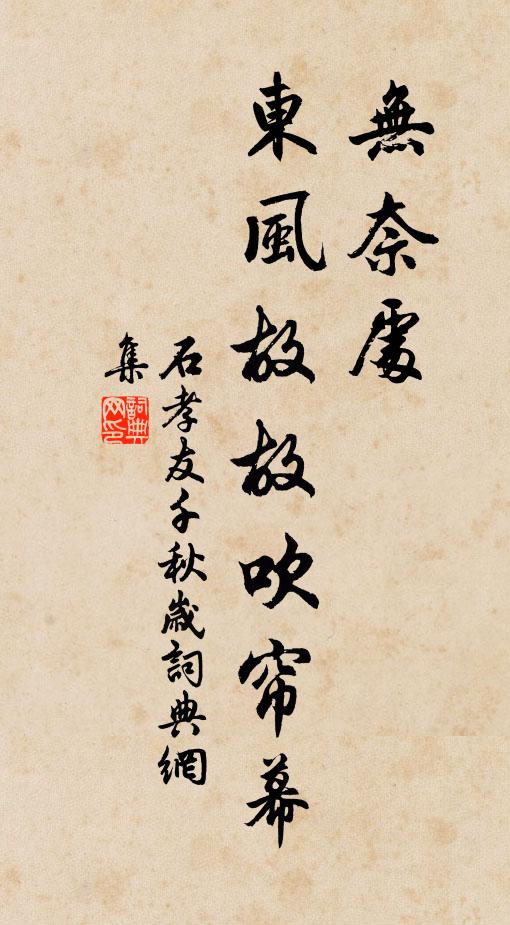 無奈處
東風故故吹帘幕
石孝友千秋歲詞典網
集
詞典网印